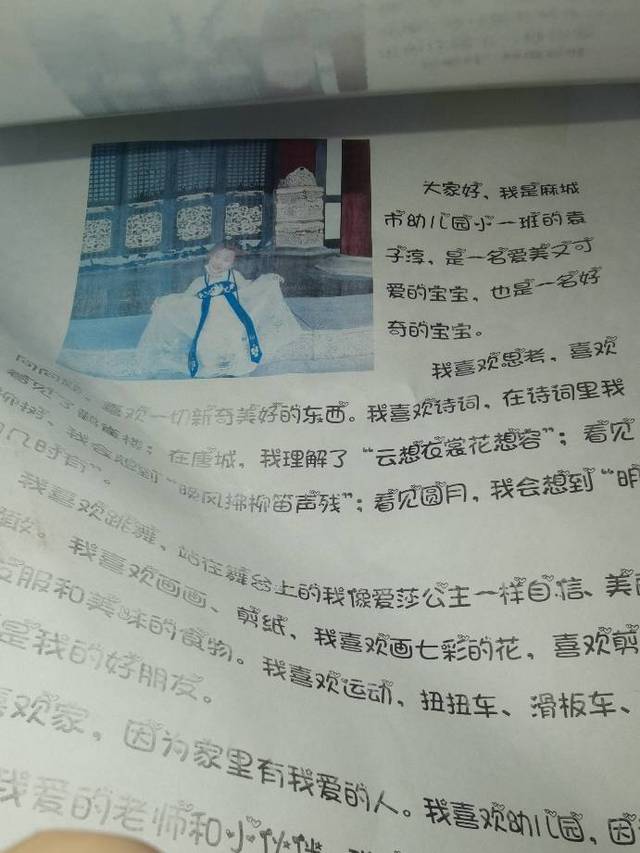 大家好，我是麻城
市幼儿园小一班的袁
子淳，是一名爱美又可
爱的宝宝，也是一名好
奇的宝宝。
我喜欢思考，喜欢
喜欢一切新奇美好的东西。我喜欢诗词，在诗词里我
看见了鹳雀楼；在唐城，我理解了“云想衣裳花想容”；看见
柳树，我会想到“晚风拂柳笛声残”；看见圆月，我会想到“明
几时有”。
我喜欢跳舞，站在舞台上的我像爱莎公主一样自信、美丽
我喜欢画画、剪纸，我喜欢画七彩的花，喜欢剪
衣服和美味的食物。我喜欢运动，扭扭车、滑板车、
是我的好朋友。
喜欢家，因为家里有我爱的人。我喜欢幼儿园，因
我爱的老师和小伙伴